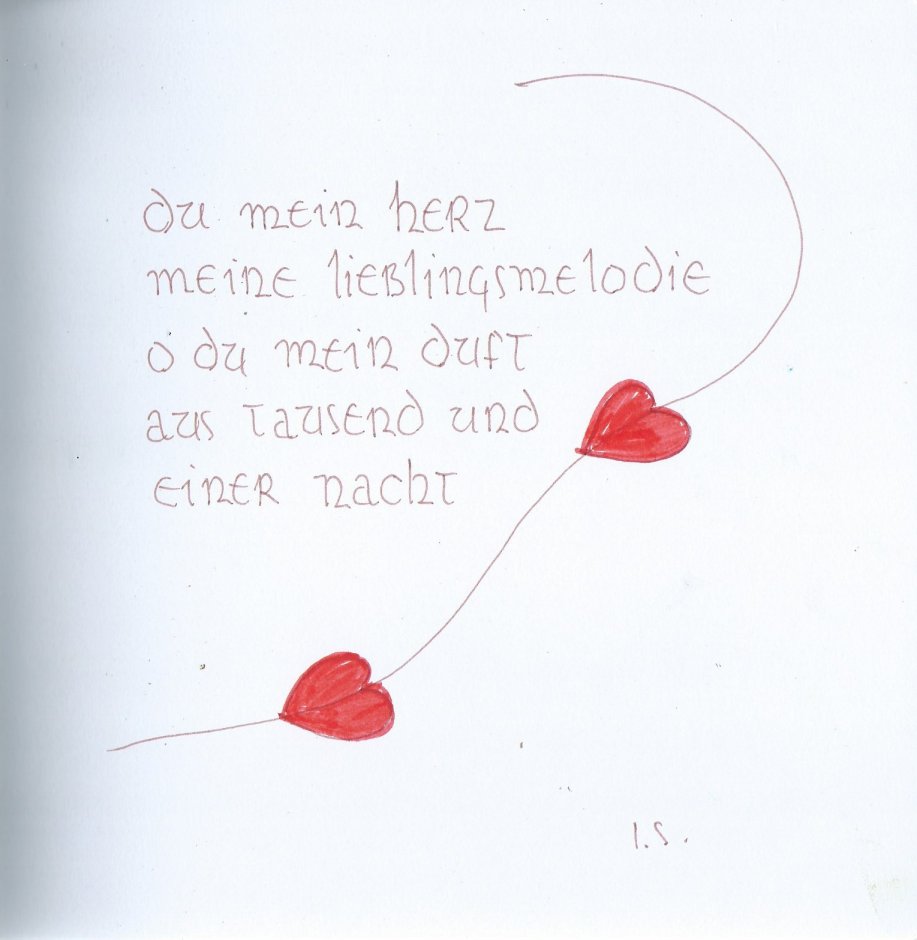 du mein herz
meine lieblingsmelodie
o du mein duft
aus tausend und
einer nacht
I.S.